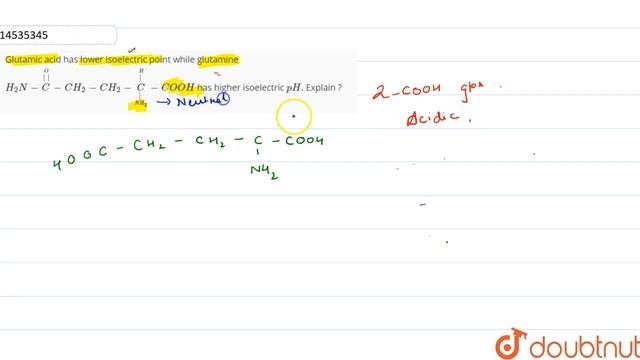 14535345
Glutamic acid has lower isoelectric point while glutamine
O H
H2N − C − CH2 − CH2 − C − COOH has higher isoelectric pH. Explain ?
NH2 → Neutral
2 -COOH gps.
Acidic,
HOOC - CH2 - CH2 - C - COOH
NH2
doubtnut